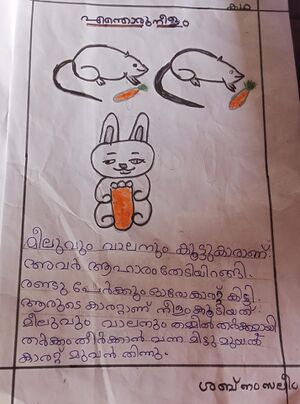 കഥ
എന്തൊരു നീളം
മീലുവും വാലനും കൂട്ടുകാരാണ്.
അവർ ആഹാരം തേടിയിറങ്ങി.
രണ്ടു പേർക്കും ഓരോ കാരറ്റ് കിട്ടി.
ആരുടെ കാരറ്റാണ് നീളം കൂടിയത്
മീലുവും വാലനും തമ്മിൽ തർക്കമായി
തർക്കം തീർക്കാൻ വന്ന മിട്ടു മുയൽ
കാരറ്റ് മുഴുവൻ തിന്നു.
ശബ്നം സലീം